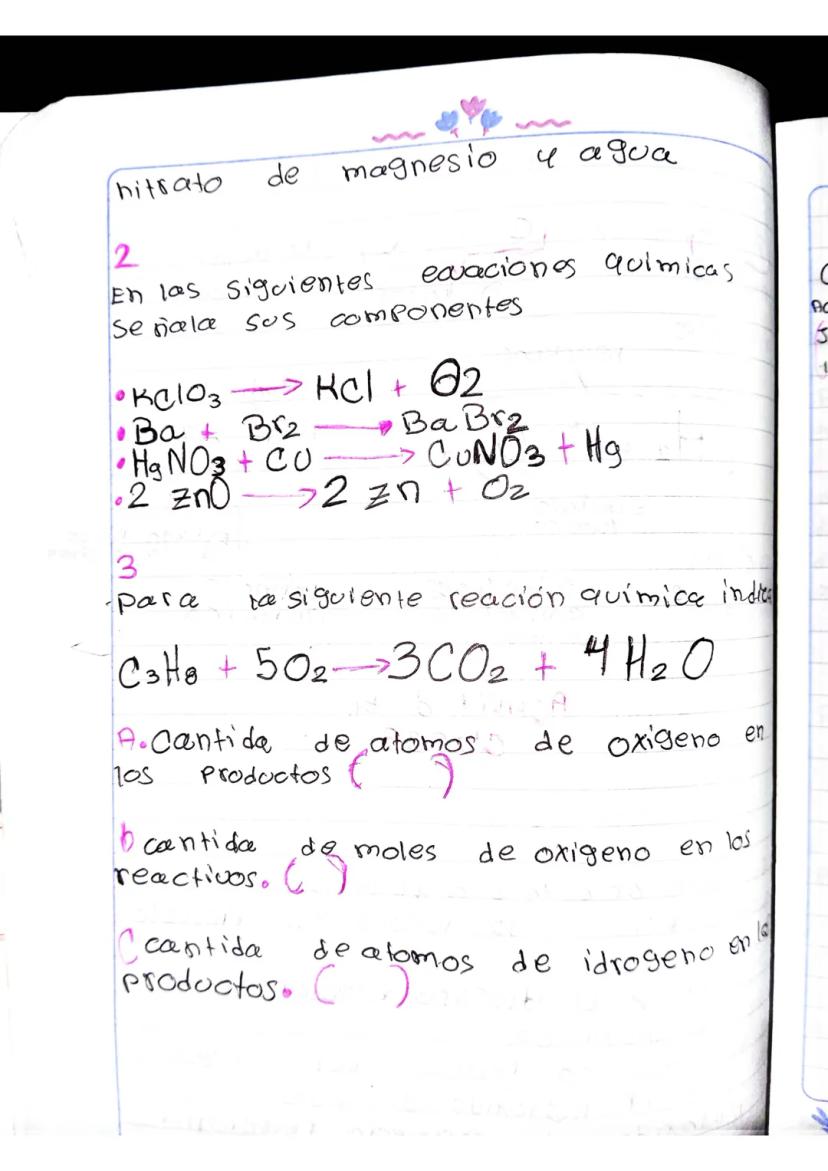 nitrato de magnesio y agua
2
En las siguientes ecuaciones químicas
señala sus componentes
•KClO3 → KCl + O2
•Ba + Br2 → BaBr2
•HgNO3 + CU → CuNO3 + Hg
•2 ZnO → 2 zn + O2
3
para la siguiente reación química indica
C3H8 + 5O2 → 3CO2 + 4H2O
A. Cantida de atomos de oxigeno en
los productos ( )
b cantida de moles de oxigeno en los
reactivos. ( )
C cantida de atomos de idrogeno en lo
productos. ( )